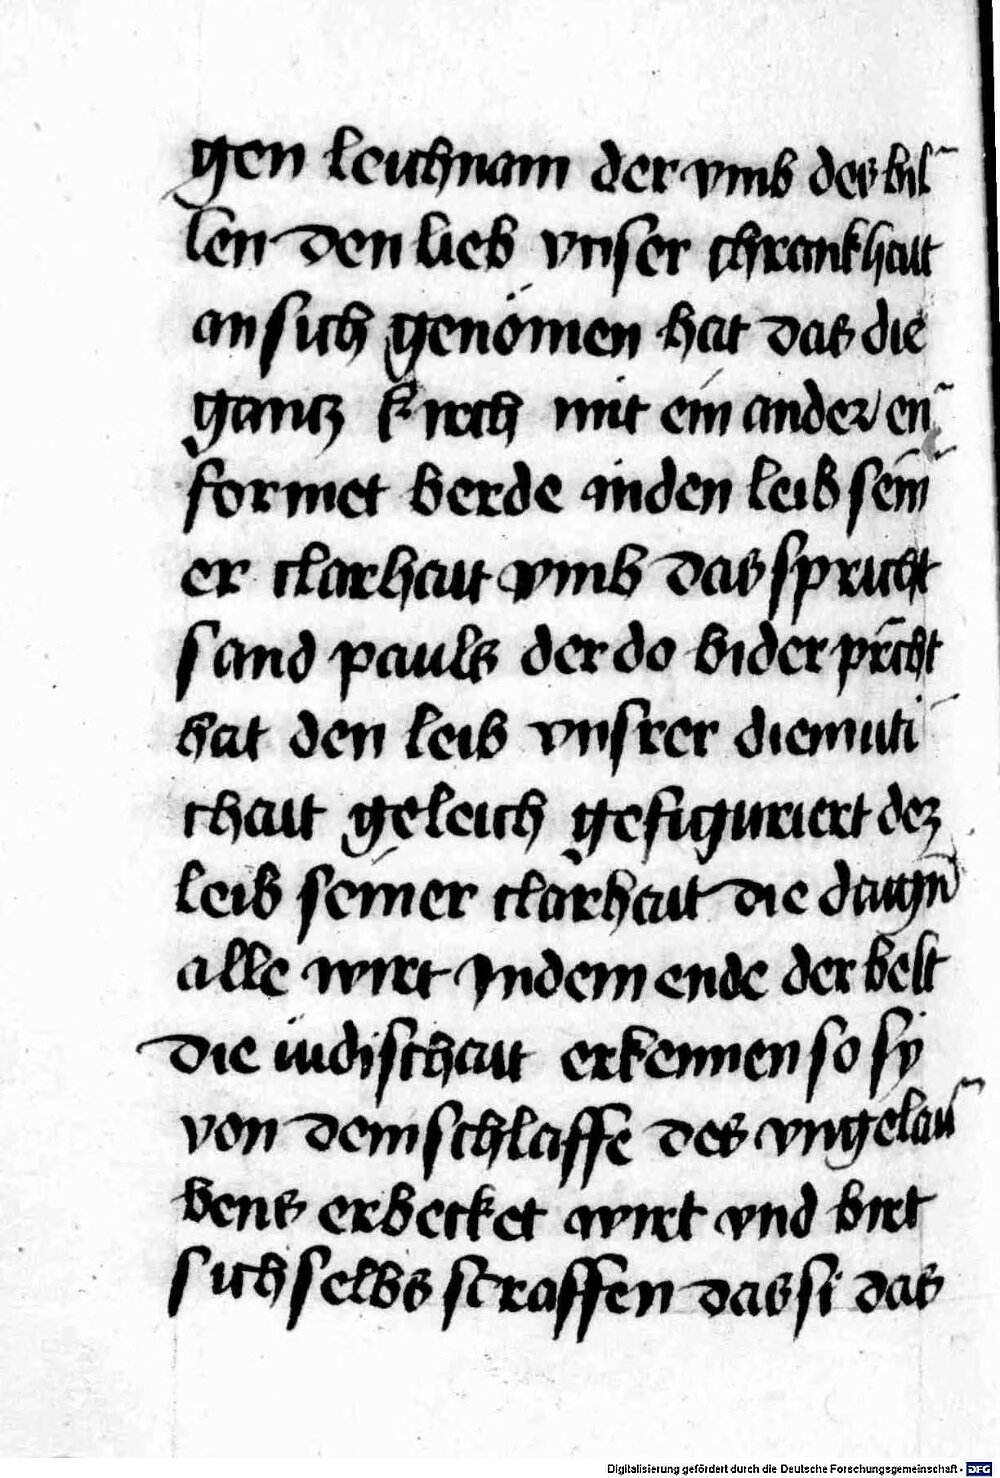 gen leichnam der vmb des bil¯
len den lieb vnser chrankhait
an sich genömen hat das die
gantz kirch mit ein ander en¯
formet berde in den leib sein¯
er clarhait vmb das spricht
sand pauls der do bider pr̄cht
hat den leib vnsrer diemuti¯
chait geleich gefiguriert dez
leib seiner clarhait die daugn̄
alle wirt Indem ende der belt
die iudischait erkennen so sy
von dem schlaffe des vngelau¯
bens erbecket wirt vnd birt
sich selbs straffen das si das
Digitalisierung gefördert durch die Deutsche Forschungsgemeinschaft - DFG